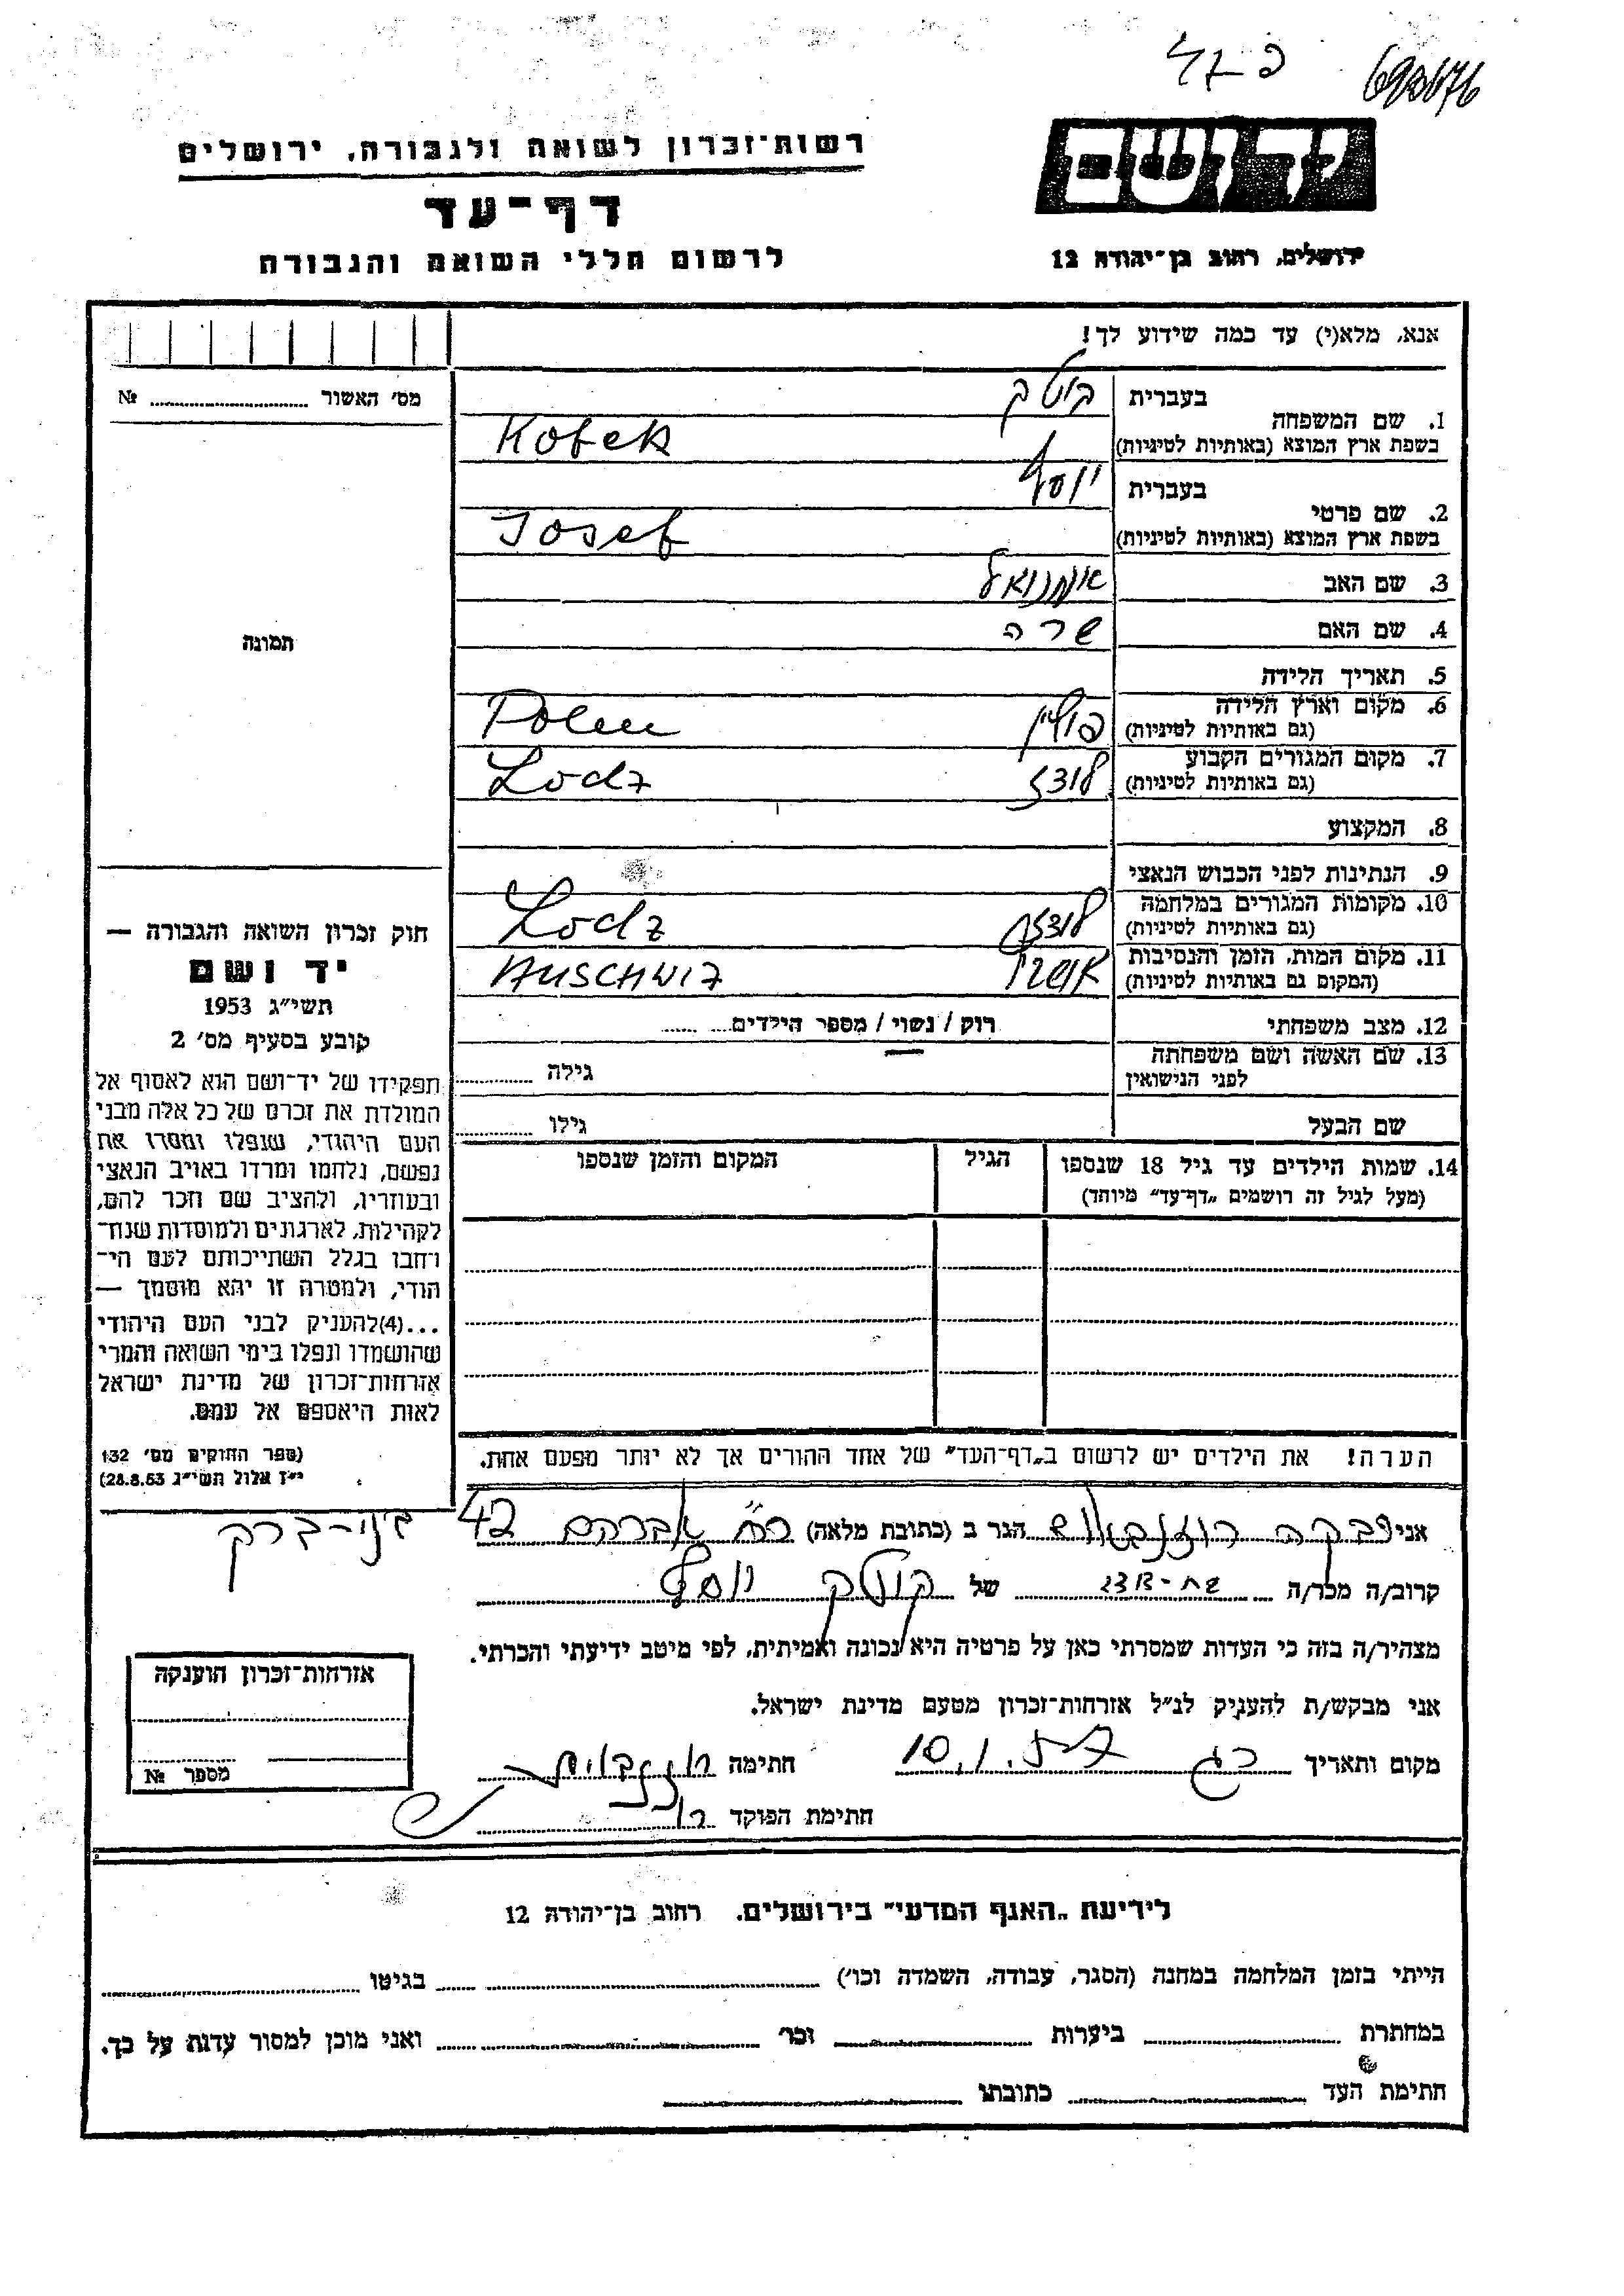 רשות־זכרון לשואה ולגבורה, ירושלים
דף־עד
לרשום חללי השואה והגבורה
יד ושם
ירושלים, רחוב בן־יהודה 12
אנא, מלא(י) עד כמה שידוע לך!
מס' האשור № 
1. שם המשפחה בעברית
בשפת ארץ המוצא (באותיות לטיניות) Kotek
2. שם פרטי בעברית יוסף
בשפת ארץ המוצא (באותיות לטיניות) Josef
3. שם האב
4. שם האם שרה
5. תאריך הלידה
6. מקום וארץ הלידה פולין Polen
(גם באותיות לטיניות)
7. מקום המגורים הקבוע לודז Lodz
(גם באותיות לטיניות)
8. המקצוע
9. הנתינות לפני הכבוש הנאצי
10. מקומות המגורים במלחמה Lodz
(גם באותיות לטיניות)
11. מקום המות, הזמן והנסיבות AUSCHWIZ
(המקום גם באותיות לטיניות)
12. מצב משפחתי רוק / נשוי / מספר הילדים
13. שם האשה ושם משפחתה גילה
לפני הנישואין
שם הבעל גילו
14. שמות הילדים עד גיל 18 שנספו הגיל המקום והזמן שנספו
(מעל לגיל זה רושמים „דף־עד" מיוחד)
הערה! את הילדים יש לרשום ב„דף־העד" של אחד ההורים אך לא יותר מפעם אחת.
תמונה
חוק זכרון השואה והגבורה —
יד ושם
תשי"ג 1953
קובע בסעיף מס' 2
תפקידו של יד־ושם הוא לאסוף אל
המולדת את זכרם של כל אלה מבני
העם היהודי, שנפלו ומסרו את
נפשם, נלחמו ומרדו באויב הנאצי
ובעוזריו, ולהציב שם וזכר להם,
לקהילות, לארגונים ולמוסדות שנח־
רבו בגלל השתייכותם לעם הי־
הודי, ולמטרה זו יהא מוסמך —
...(4)להעניק לבני העם היהודי
שהושמדו ונפלו בימי השואה והמרי
אזרחות־זכרון של מדינת ישראל
לאות היאספם אל עמם.
(ספר החוקים מס' 132
י"ז אלול תשי"ג 28.8.53)
אני רבקה הגר ב (כתובת מלאה) אברהם 42 בני־ברק
קרוב/ה מכר/ה של קוטק יוסף
מצהיר/ה בזה כי העדות שמסרתי כאן על פרטיה היא נכונה ואמיתית, לפי מיטב ידיעתי והכרתי.
אני מבקש/ת להעניק לנ"ל אזרחות־זכרון מטעם מדינת ישראל.
מקום ותאריך חתימה
חתימת הפוקד
אזרחות־זכרון הוענקה
מספר №
לידיעת „האגף המדעי" בירושלים. רחוב בן־יהודה 12
הייתי בזמן המלחמה במחנה (הסגר, עבודה, השמדה וכו') בגיטו
במחתרת ביערות וכו' ואני מוכן למסור עדות על כך.
חתימת העד כתובתו